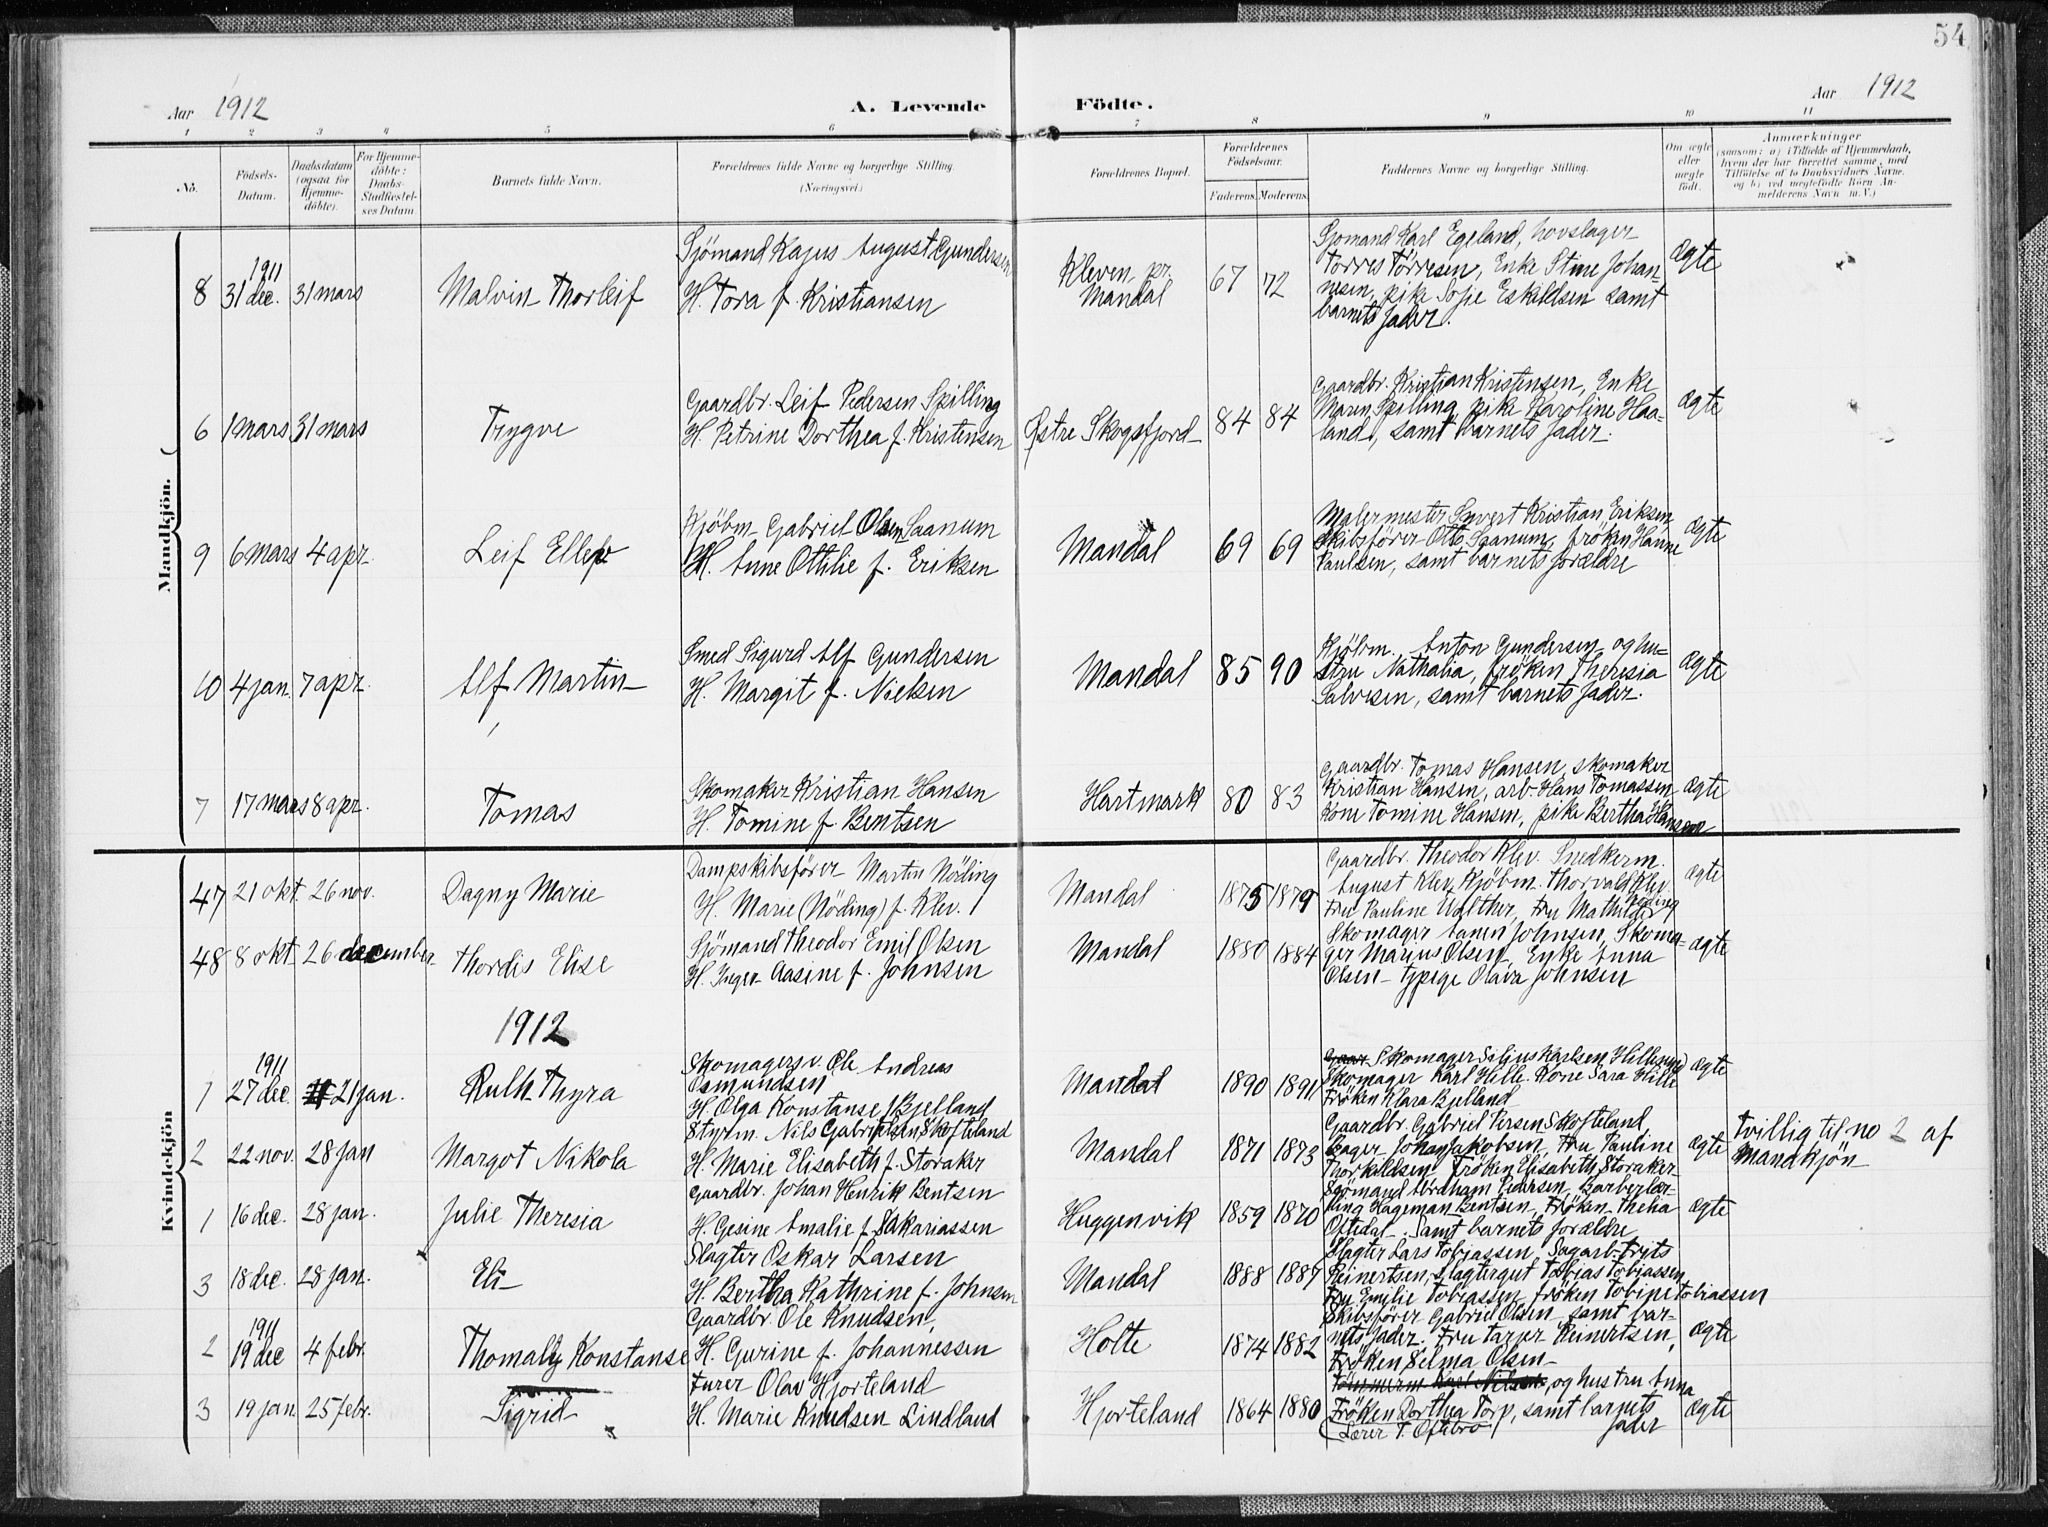 54
Aar 1912
A. Levende Födte.
Aar 1912
1 2 3 4 5 6 7 8 9 10 11
No.
Födsels-Datum.
Daabsdatum (ogsaa for Hjemme-döbte).
For Hjemme-döbte: Daabs-Stadfæstel-ses Datum.
Barnets fulde Navn.
Forældrenes fulde Navne og borgerlige Stilling.
(Næringsvei.)
Forældrenes Bopæl.
Forældrenes Födselsaar.
Faderens. Moderens.
Faddernes Navne og borgerlige Stilling.
Om ægte eller uægte födt.
Anmærkninger
(saasom: a) i Tilfælde af Hjemmedaab, hvem der har forrettet samme, med Tilföielse af to Daabsvidners Navne. og b) ved uægtefödte Börn An-melderens Navn m. V.)
Mandkjön.
8 1911 31 dec. 31 mars Malvin Thorleif
Sjömand Kajus August Gundersen
H. Tora f. Kristiansen
Kleven pr. Mandal 67 72
Sjömand Karl Egeland, hovslager
Torres Törresen, Enke Stine Johan-
nesen, pike Sofie Eskildsen samt
barnets fader.
ægte
6 1 mars 31 mars Trygve
Gaardbr. Leif Pedersen Spilling
H. Petrine Dorthea f. Kristensen
Östre Skogsfjord 84 84
Gaardbr. Kristian Kristensen, Enke
Maren Spilling, pike Karoline Haa-
land, samt barnets fader.
ægte
9 6 mars 4 apr. Leif
Kjöbm. Gabriel Olsen Saanum
H. Anne Ottilie f. Eriksen
Mandal 69 69
Malermester Sivert Kristian Eriksen
Skibsförer Otto Saanum, fröken Hanne
Paulsen, samt barnets forældre
ægte
10 4 jan. 7 apr. Alf Martin
Smed Sigurd Alf Gundersen
H. Margit f. Nielsen
Mandal 85 90
Kjöbm. Anton Gundersen og hu-
stru Nathalia, fröken Theresia
Salvesen, samt barnets fader.
ægte
7 17 mars 8 apr. Tomas
Skomaker Kristian Hansen
H. Tomine f. Bentsen
Hartmark 80 83
Gaardbr. Tomas Hansen, skomaker
Kristian Hansen, arb. Hans Tomassen
Kone Tomine Hansen, pike Bertha Hansen
ægte
Kvindekjön
47 21 okt. 26 nov. Dagny Marie
Dampskibsförer Martin Nöding
H. Marie (Nöding) f. Klev.
Mandal 1875 1879
Gaardbr. Theodor Klev. Snedkerm.
August Klev, Kjöbm. Thorvald Klev.
Fru Pauline Walther, Fru Mathilde Nöding
ægte
48 8 okt. 26 december Thordis Elise
Sjömand Theodor Emil Olsen
H. Inger Aasine f. Johnsen
Mandal 1880 1884
Skomager Johnsen, Skoma-
ger Marius Olsen, Enke Anna
Olsen - Olava Johnsen
ægte
1912
1 1911 27 dec. 21 jan. Ruth Thyra
Skomagersv. Ole Andreas
Osmundsen
H. Olga Konstanse f. Bjelland
Mandal 1890 1891
Skomager Karlsen
Skomager Karl Hille. Kone Sara Hille
Fröken Klara Bjelland
ægte
2 22 nov. 28 jan Margot Nikola
Styrm. Nils Gabrielsen Skofteland
H. Marie Elisabeth f. Storaker
Mandal 1871 1873
Gaardbr. Gabriel Persen Skofteland,
Bager Johan Jakobsen, Fru Pauline
Thorkildsen Fröken Elisabeth Storaker
ægte
Tvillig til no 2 af
Mandkjön
1 16 dec. 28 jan. Julie Theresia
Gaardbr. Johan Henrik Bentsen
H. Gesine Amalie f. Sakariassen
Huggenvik 1859 1870
Sjömand Abraham Pedersen, Barberlær-
ling Hageman Bentsen, Fröken Thelia
Oftedal. Samt barnets forældre
ægte
3 18 dec. 28 jan. Eli
Slagter Oskar Larsen
H. Bertha Kathrine f. Johnsen
Mandal 1888 1887
Slagter Lars Tobiassen, Sagarb.
Reinertsen, Slagtergut Tobias Tobiassen
Fru Emilie Tobiassen Fröken Tobine Tobiassen
2 1911 19 dec 4 febr. Konstanse
Gaardbr. Ole Knudsen,
H. Gurine f. Johannessen
Holte 1874 1882
Skibsförer Gabriel Olsen, samt bar-
nets fader. Fru Reinertsen,
Fröken Selma Olsen
ægte
3 19 jan. 25 febr. Sigrid
Furer Olav Hjorteland
H. Marie Knudsen Lindland
Hjorteland 1864 1880
og hustru Anna
Fröken Dorthea Torp, samt barnets
fader
Lærer T. Oftebro
ægte